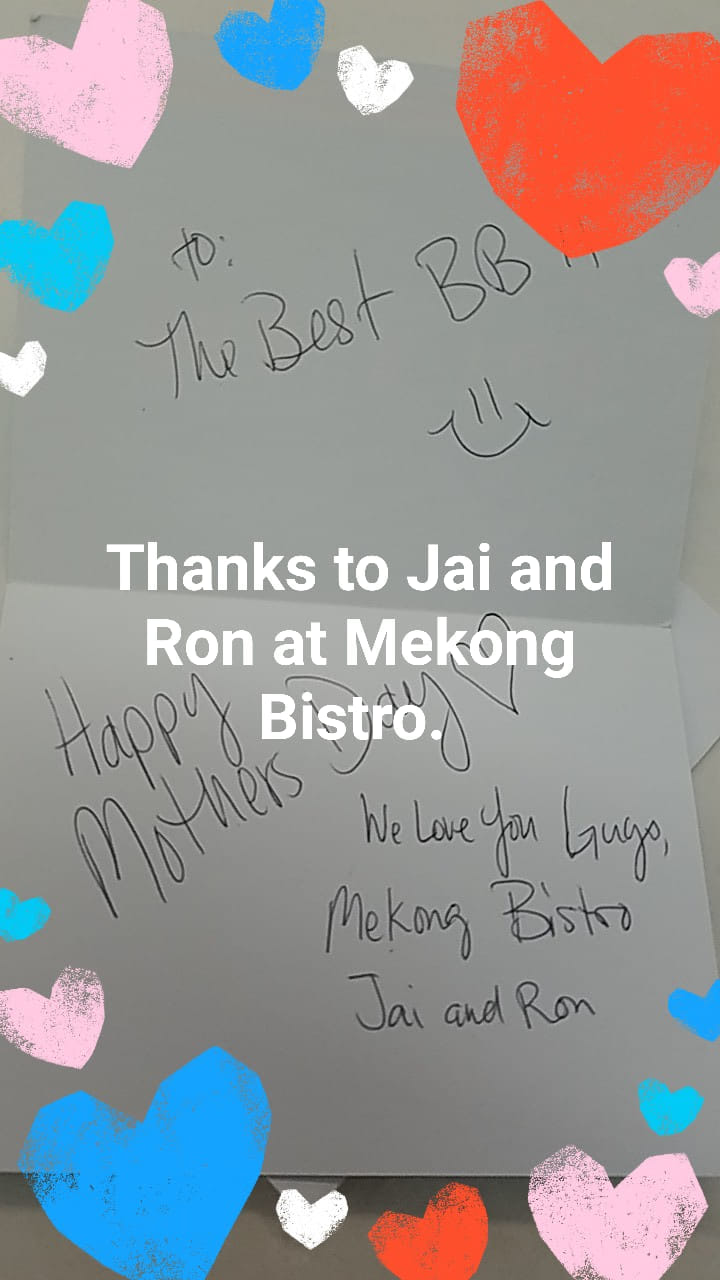 to:
The Best BB
Thanks to Jai and
Ron at Mekong
Bistro.
Happy
Mothers Day
We Love You Guys,
Mekong Bistro
Jai and Ron